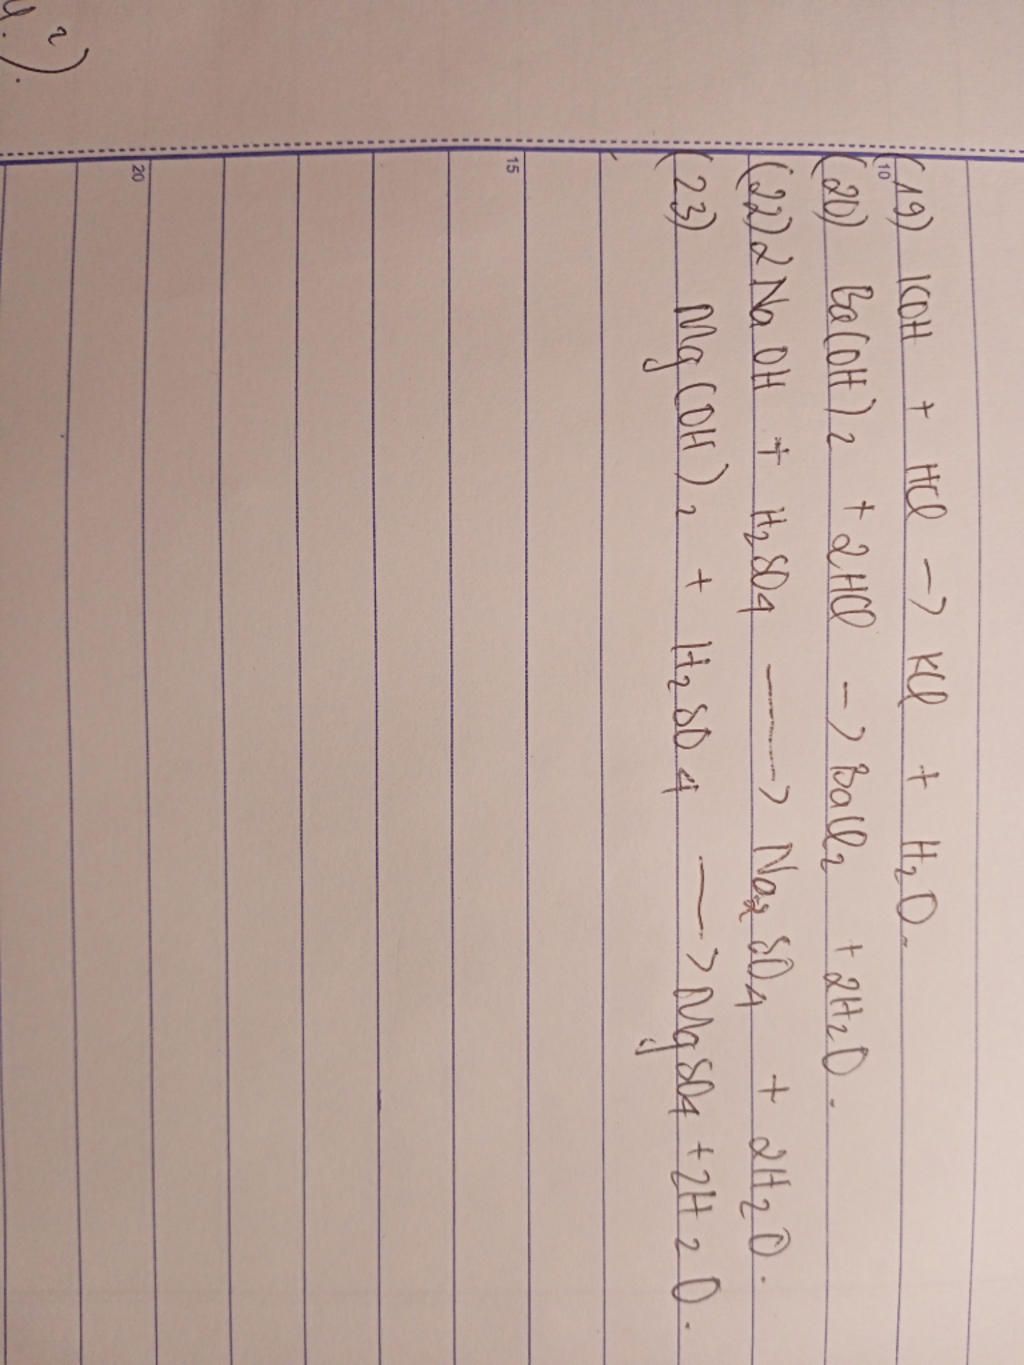 (19) KOH + HCl -> KCl + H₂O.
(20) Ba(OH)₂ + 2HCl -> BaCl₂ + 2H₂O.
(22) 2NaOH + H₂SO4 -> Na₂SO4 + 2H₂O.
(23) Mg(OH)₂ + H₂SO4 -> MgSO4 + 2H₂O.
10
15
20